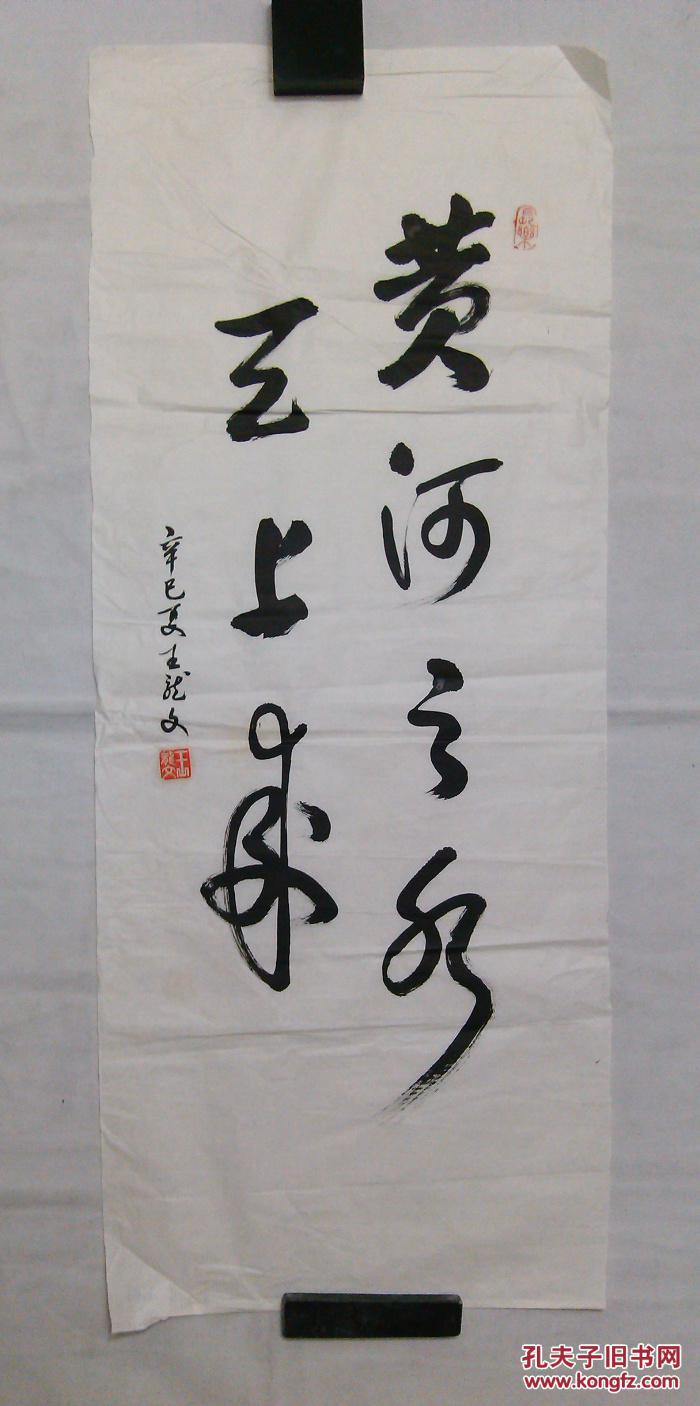 黄河之水
天上来
辛巳夏王龙文
孔夫子旧书网
www.kongfz.com